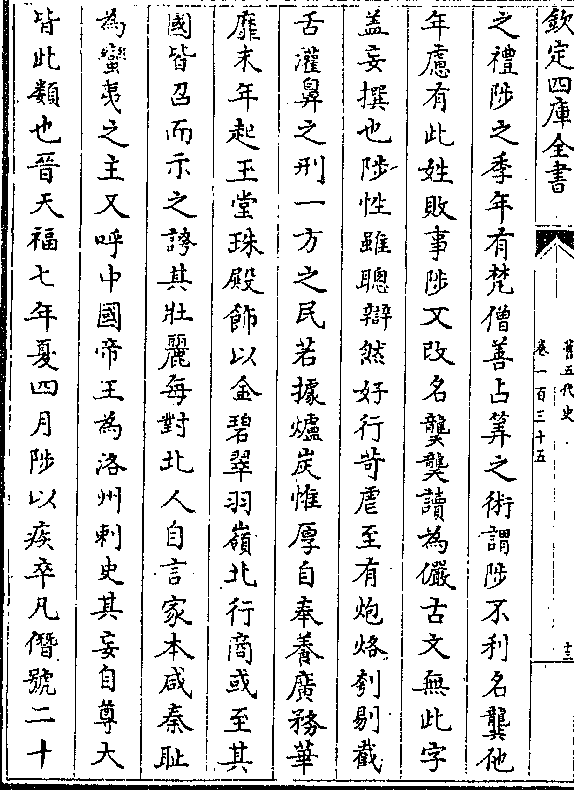 欽定四庫全書
舊五代史
卷一百三十五
十三
之禮陟之季年有梵僧善占筭之術謂陟不利名龔他
年慮有此姓敗事陟又改名龑龑讀為儼古文無此字
盖妄撰也陟性雖聰辯然好行苛虐至有炮烙刳剔截
舌灌鼻之刑一方之民若據爐炭惟厚自奉養廣務華
靡末年起玉堂珠殿飾以金碧翠羽嶺北行商或至其
國皆召而示之誇其壯麗每對北人自言家本咸秦恥
為蠻夷之主又呼中國帝王為洛州刺史其妄自尊大
皆此類也晉天福七年夏四月陟以疾卒凡僭號二十